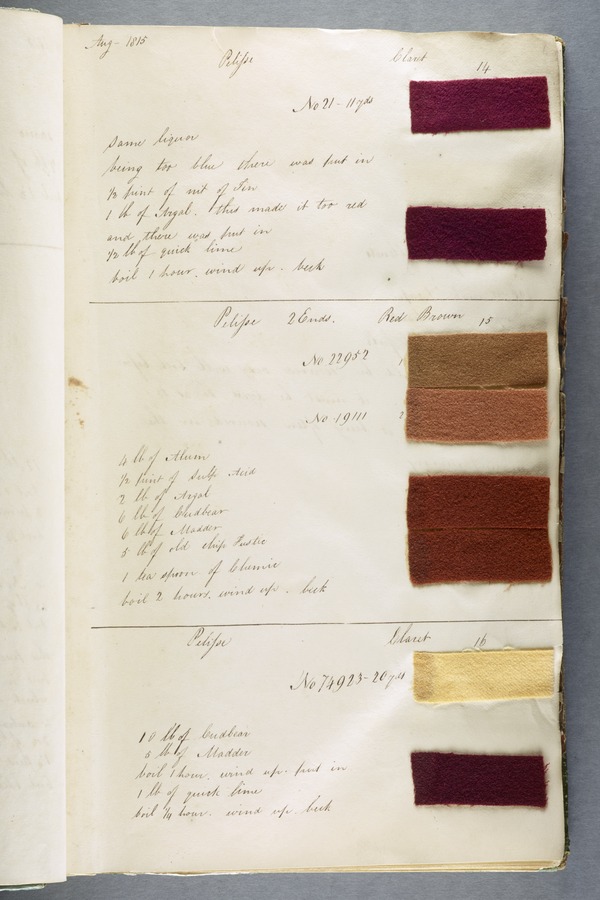 Aug - 1815
Pelisse Claret 14
No 21 - 11 yds
Same liquor
being too blue there was put in
½ pint of nit of Tin
1 lb of Argal. this made it too red
and there was put in
½ lb of quick lime
boil 1 hour. wind up. beck
Pelisse 2 Ends. Red Brown 15
No 22952 1
No 19111 2
4 lb of Alum
½ pint of Sulp Acid
2 lb of Argal
6 lb of Cudbear
6 lb of Madder
5 lb of old chip Fustic
1 tea spoon of Chemic
boil 2 hours. wind up. beck
Pelisse Claret 16
No 74923 - 20 yds
10 lb of Cudbear
5 lb of Madder
boil 1 hour. wind up. put in
1 lb of quick lime
boil ¼ hour. wind up. beck